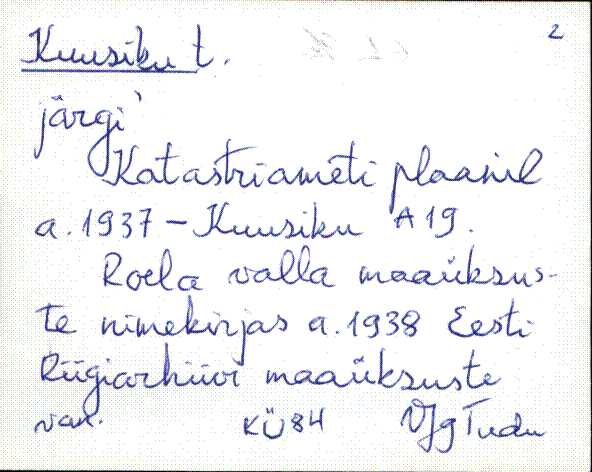 Kuusiku t. 2
järgi
Katastriameti plaanil
a. 1937 – Kuusiku A 19.
Roela valla maaüksus-
te nimekirjas a. 1938 Eesti
Riigiarhiivi maaüksuste
KÜ 84 VJg Tudu